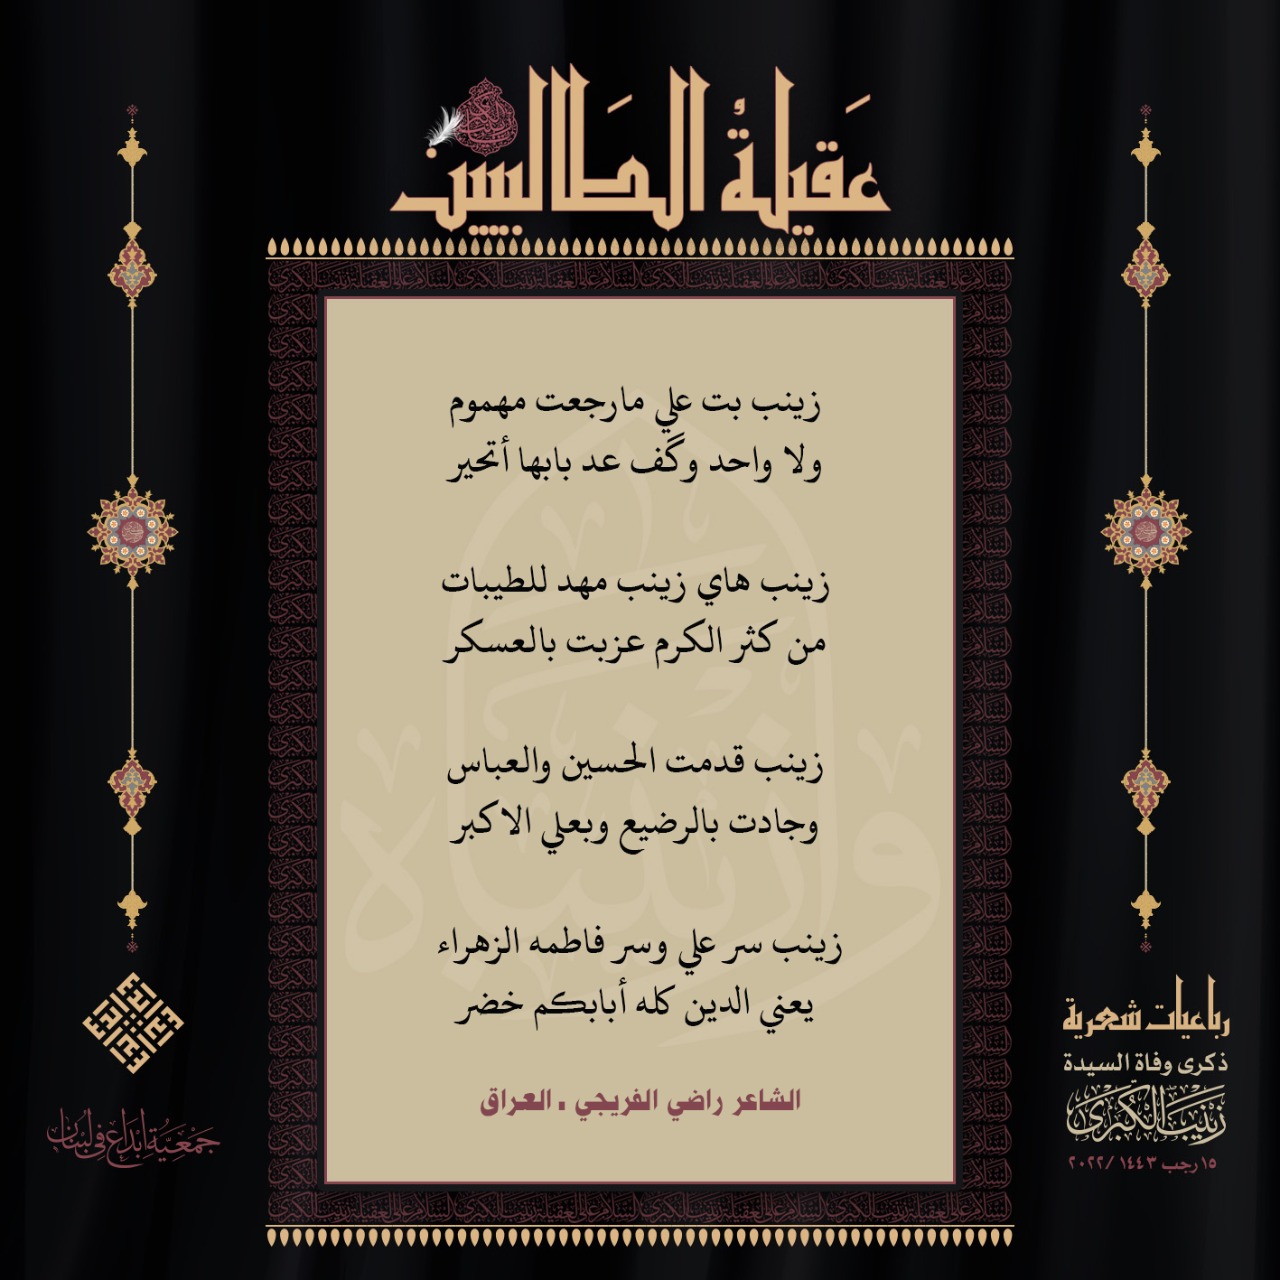 عَقيلةُ الطَالبيين
زينب بت علي مارجعت مهموم
ولا واحد وگف عد بابها أتحير
زينب هاي زينب مهد للطيبات
من كثر الكرم عزبت بالعسكر
زينب قدمت الحسين والعباس
وجادت بالرضيع وبعلي الاكبر
زينب سر علي وسر فاطمه الزهراء
يعني الدين كله أبابكم خضر
الشاعر راضي الفريجي . العراق
رباعيات شعرية
ذكرى وفاة السيدة
زينب الكبرى
١٥ رجب ١٤٤٣ /٢٠٢٢
جمعية إبداع في لبنان
وازينباه